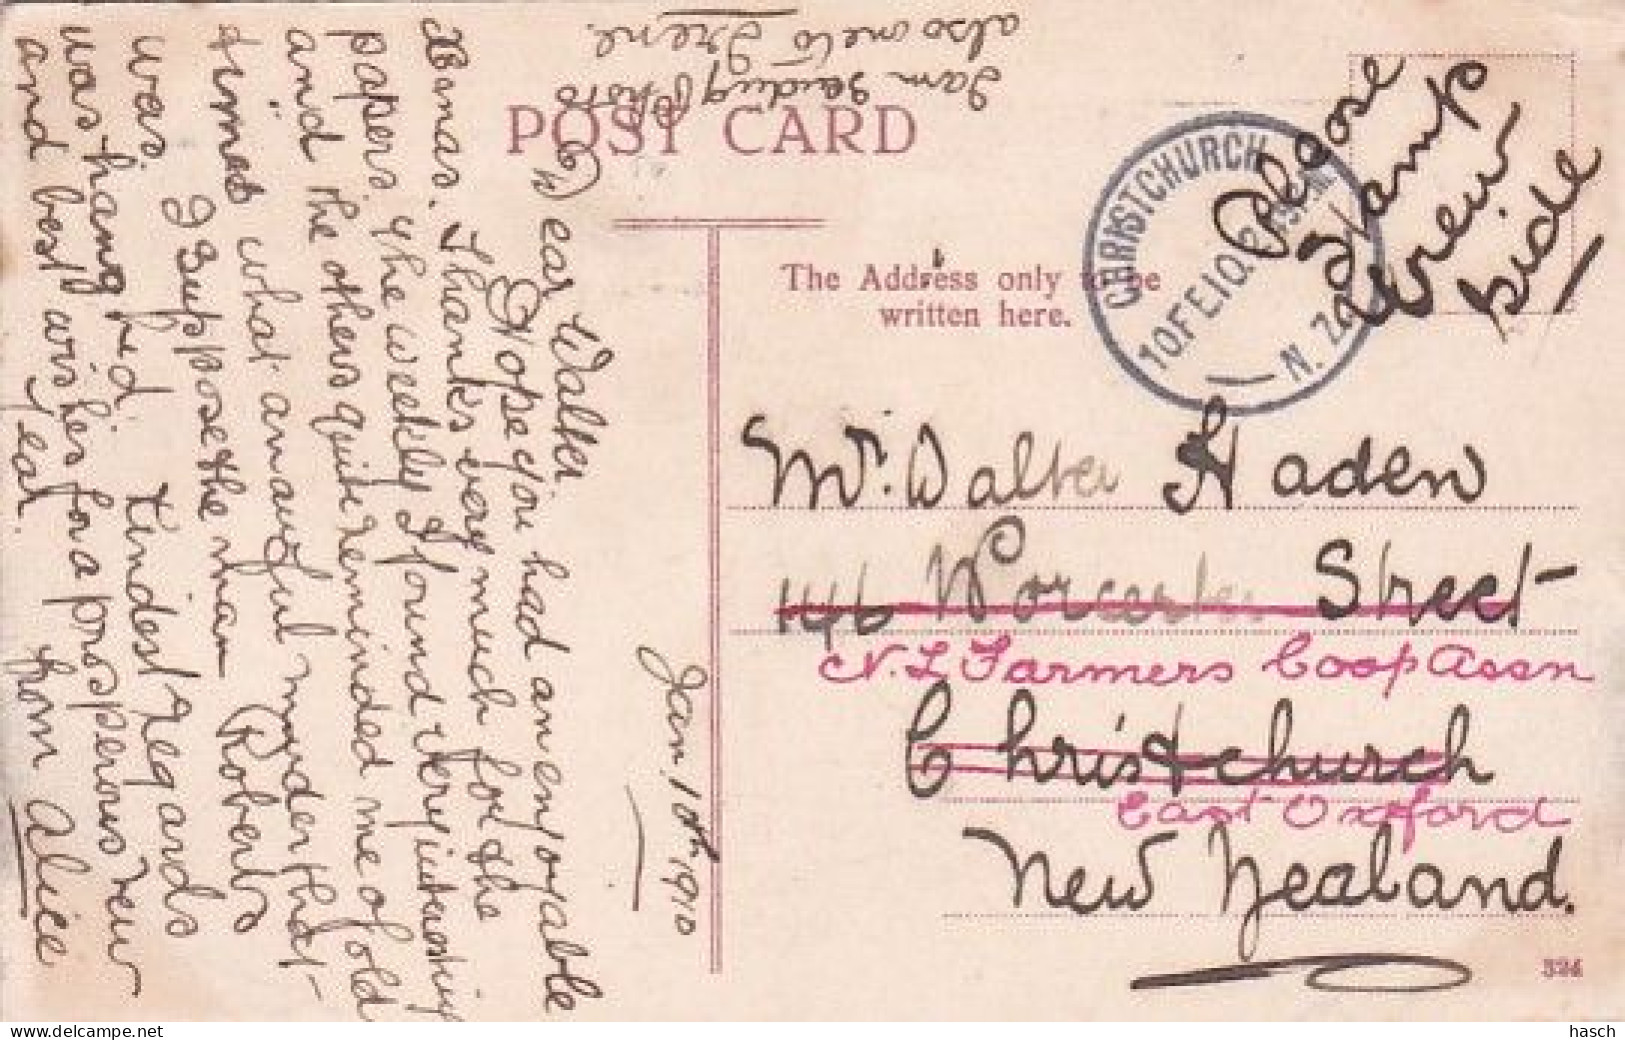 I am sending Photo
also one to Irene.
POST CARD
Please
stamp
view
side
CHRISTCHURCH
10 FE 10
N. Z.
The Address only to be
written here.
Mr. Walter Haden
146 Worcester Street
N. Z Farmers Coop Assn
Christchurch
East Oxford
New Zealand.
324
Jan. 10th 1910
Dear Walter
Hope you had an enjoyable
Xmas. Thanks very much for the
papers. The weekly I found very interesting
and the others quite reminded me of old
times what an awful murder that
was I suppose the man Roberts
was hanged. Kindest regards
and best wishes for a prosperous new
year. from Alice
hasch delcampe.net